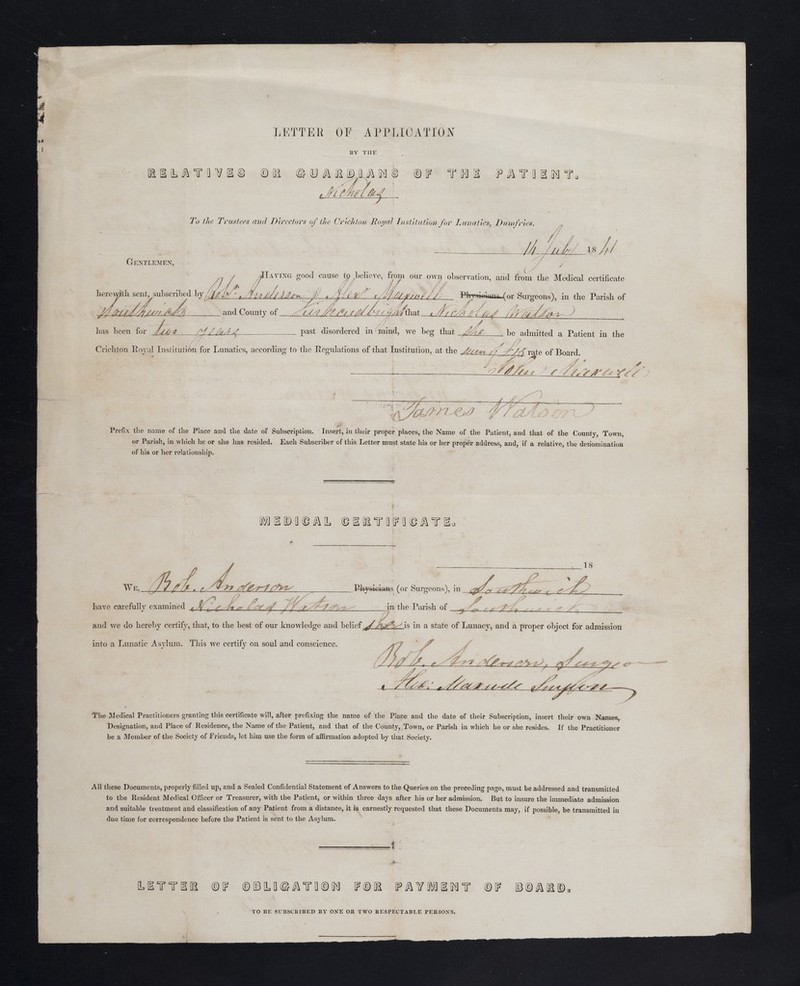 LETTER OF APPLICATION
BY THE
RELATIVES OR GUARDIANS OF THE PATIENT.
Nicholas
To the Trustees and Directors of the Crichton Royal Institution for Lunatics, Dumfries.
14 July 1841
GENTLEMEN,
HAVING good cause to believe, from our own observation, and from the Medical certificate
herewith sent, subscribed by Robt. Anderson & Alexr Maxwell Physicians (or Surgeons), in the Parish of
Southwick and County of Kirkcudbright that Nicholas Watson
has been for two years past disordered in mind, we beg that she be admitted a Patient in the
Crichton Royal Institution for Lunatics, according to the Regulations of that Institution, at the rate of Board.
John Maxwell
James Watson
Prefix the name of the Place and the date of Subscription. Insert, in their proper places, the Name of the Patient, and that of the County, Town,
or Parish, in which he or she has resided. Each Subscriber of this Letter must state his or her proper address, and, if a relative, the denomination
of his or her relationship.
MEDICAL CERTIFICATE.
18
WE, Rob. Anderson Physicians (or Surgeons), in Southwick
have carefully examined Nicholas Watson in the Parish of Southwick
and we do hereby certify, that, to the best of our knowledge and belief she is in a state of Lunacy, and a proper object for admission
into a Lunatic Asylum. This we certify on soul and conscience.
Rob. Anderson, Surgeon
Alex: Maxwell Surgeon
The Medical Practitioners granting this certificate will, after prefixing the name of the Place and the date of their Subscription, insert their own Names,
Designation, and Place of Residence, the Name of the Patient, and that of the County, Town, or Parish in which he or she resides. If the Practitioner
be a Member of the Society of Friends, let him use the form of affirmation adopted by that Society.
All these Documents, properly filled up, and a Sealed Confidential Statement of Answers to the Queries on the preceding page, must be addressed and transmitted
to the Resident Medical Officer or Treasurer, with the Patient, or within three days after his or her admission. But to insure the immediate admission
and suitable treatment and classification of any Patient from a distance, it is earnestly requested that these Documents may, if possible, be transmitted in
due time for correspondence before the Patient is sent to the Asylum.
LETTER OF OBLIGATION FOR PAYMENT OF BOARD.
TO BE SUBSCRIBED BY ONE OR TWO RESPECTABLE PERSONS.